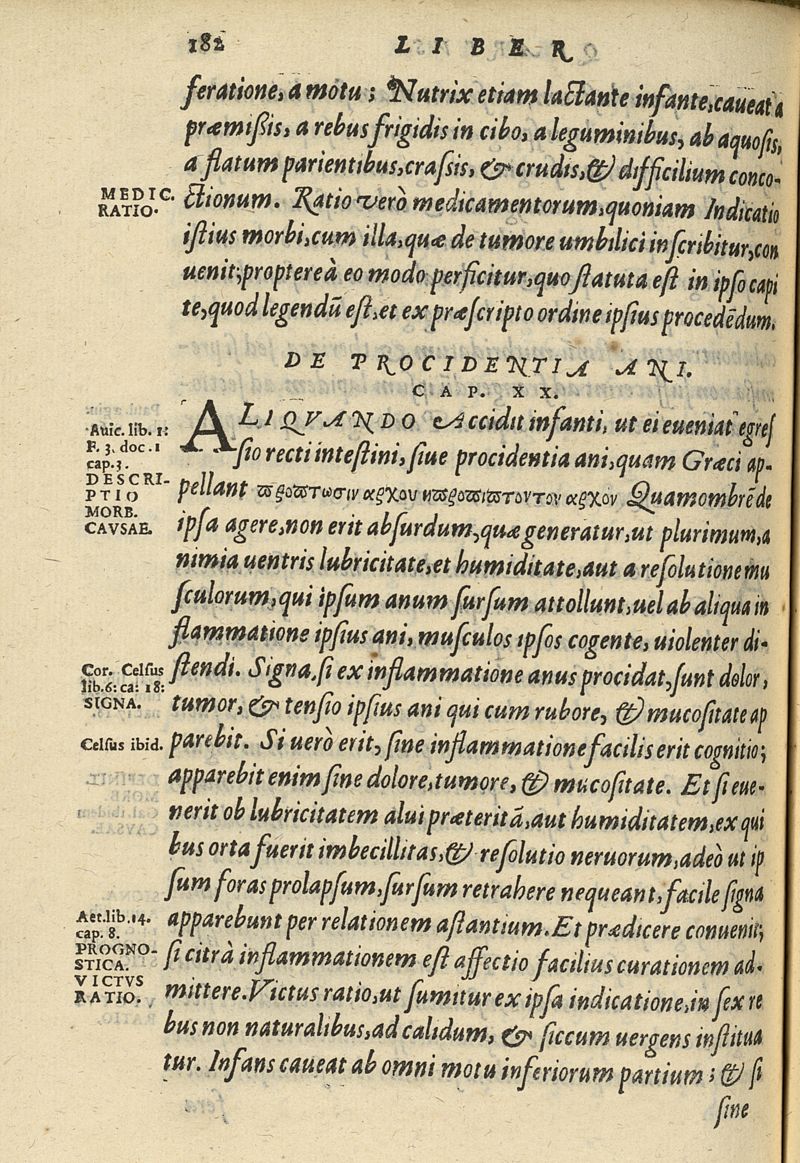 182 LIBER
feratione, a motu; Nutrix etiam lactante infante, caueat a
præmißis, a rebus frigidis in cibo, a leguminibus, ab aquosis,
a flatum parientibus, crassis, & crudis, & difficilium conco-
MEDIC.
RATIO.
ctionum. Ratio verò medicamentorum, quoniam Indicatio
istius morbi, cum illa, quæ de tumore umbilici inscribitur, con
uenit; proptereà eo modo perficitur, quo statuta est in ipso capi
te, quod legendũ est, et ex præscripto ordine ipsius procedẽdum.
DE PROCIDENTIA ANI.
CAP. XX.
Auic. lib. 1:
F. 3. doc. 1
cap. 3.
DESCRI-
PTIO
MORB.
CAVSAE.
ALIQVANDO Accidit infanti, ut ei eueniat egres
sio recti intestini, siue procidentia ani, quam Græci ap-
pellant ϖροϖτωσιν αρχου ηϖροϖιϖτουτον αρχον Quamombrẽ de
ipsa agere, non erit absurdum, quæ generatur, ut plurimum, a
nimia uentris lubricitate, et humiditate, aut a resolutione mu
sculorum, qui ipsum anum sursum attollunt, uel ab aliqua in
flammatione ipsius ani, musculos ipsos cogente, uiolenter di-
Cor. Celsus
lib. 6: ca: 18:
SIGNA.
stendi. Signa, si ex inflammatione anus procidat, sunt dolor,
tumor, & tensio ipsius ani qui cum rubore, & mucositate ap
Celsus ibid.
parebit. Si uerò erit, sine inflammatione facilis erit cognitio;
apparebit enim sine dolore, tumore, & mucositate. Et si eue-
nerit ob lubricitatem alui præteritã, aut humiditatem, ex qui
bus orta fuerit imbecillitas, & resolutio neruorum, adeò ut ip
sum foras prolapsum, sursum retrahere nequeant, facile signa
Aet. lib. 14.
cap. 8.
PROGNO-
STICA.
VICTVS
RATIO.
apparebunt per relationem astantium. Et prædicere conuenit;
si citrà inflammationem est affectio facilius curationem ad-
mittere. Victus ratio, ut sumitur ex ipsa indicatione, in sex re
bus non naturalibus, ad calidum, & siccum uergens institua
tur. Infans caueat ab omni motu inferiorum partium; & si
sine